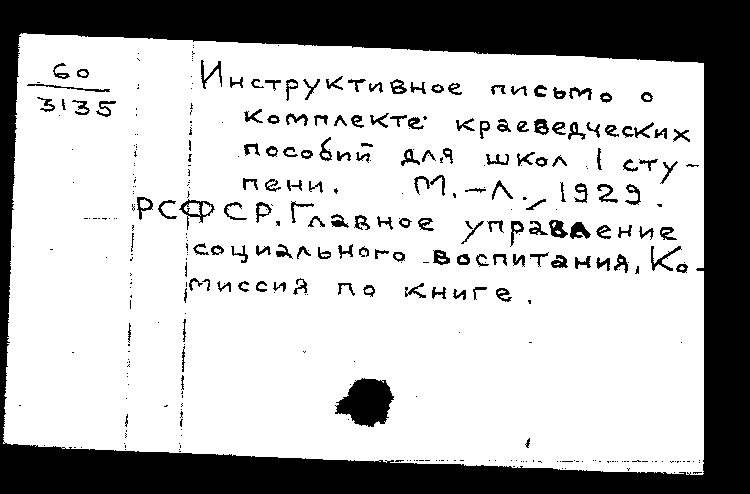 60
3135
Инструктивное письмо о
комплекте краеведческих
пособий для школ I сту-
пени. М.-Л., 1929.
РСФСР. Главное управление
социального воспитания, Ко-
миссия по книге.